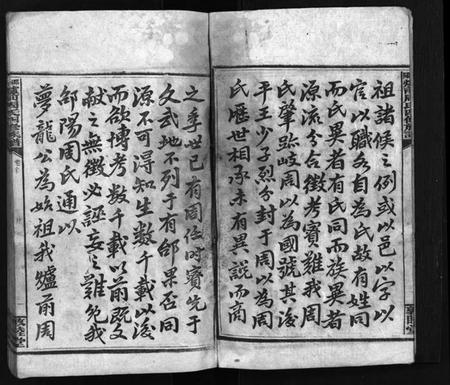 祖諸侯之例或以邑以字以
官以職各自為氏故有姓同
而氏異者有氏同而族異者
源流分合徵考實難我周
氏肇跡岐周以為國號其後
平王少子烈分封于周以為周
氏歷世相承未有異說而商
之季世已有周任時實先于
文武地不列于有邰果否同
源不可得知生數千載以後
而欲博考數千載以前既文
獻之無徵必誣妄之難免我
邵陽周氏通以
夢龍公為始祖我爐前周